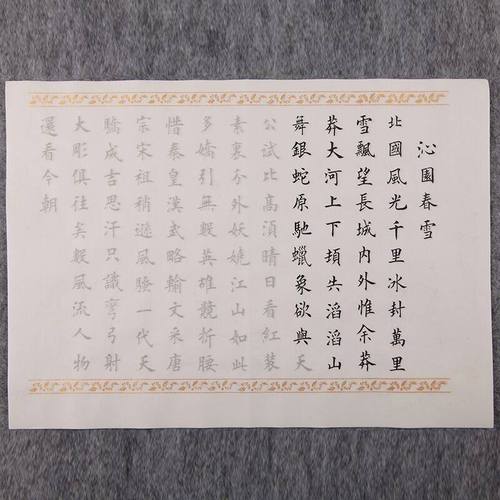 沁園春雪
北國風光千里冰封萬里
雪飄望長城內外惟余莽
莽大河上下頓失滔滔山
舞銀蛇原馳蠟象欲與天
公試比高須晴日看紅裝
素裹分外妖嬈江山如此
多嬌引無數英雄競折腰
惜秦皇漢武略輸文采唐
宗宋祖稍遜風騷一代天
驕成吉思汗只識彎弓射
大彫俱往矣數風流人物
還看今朝